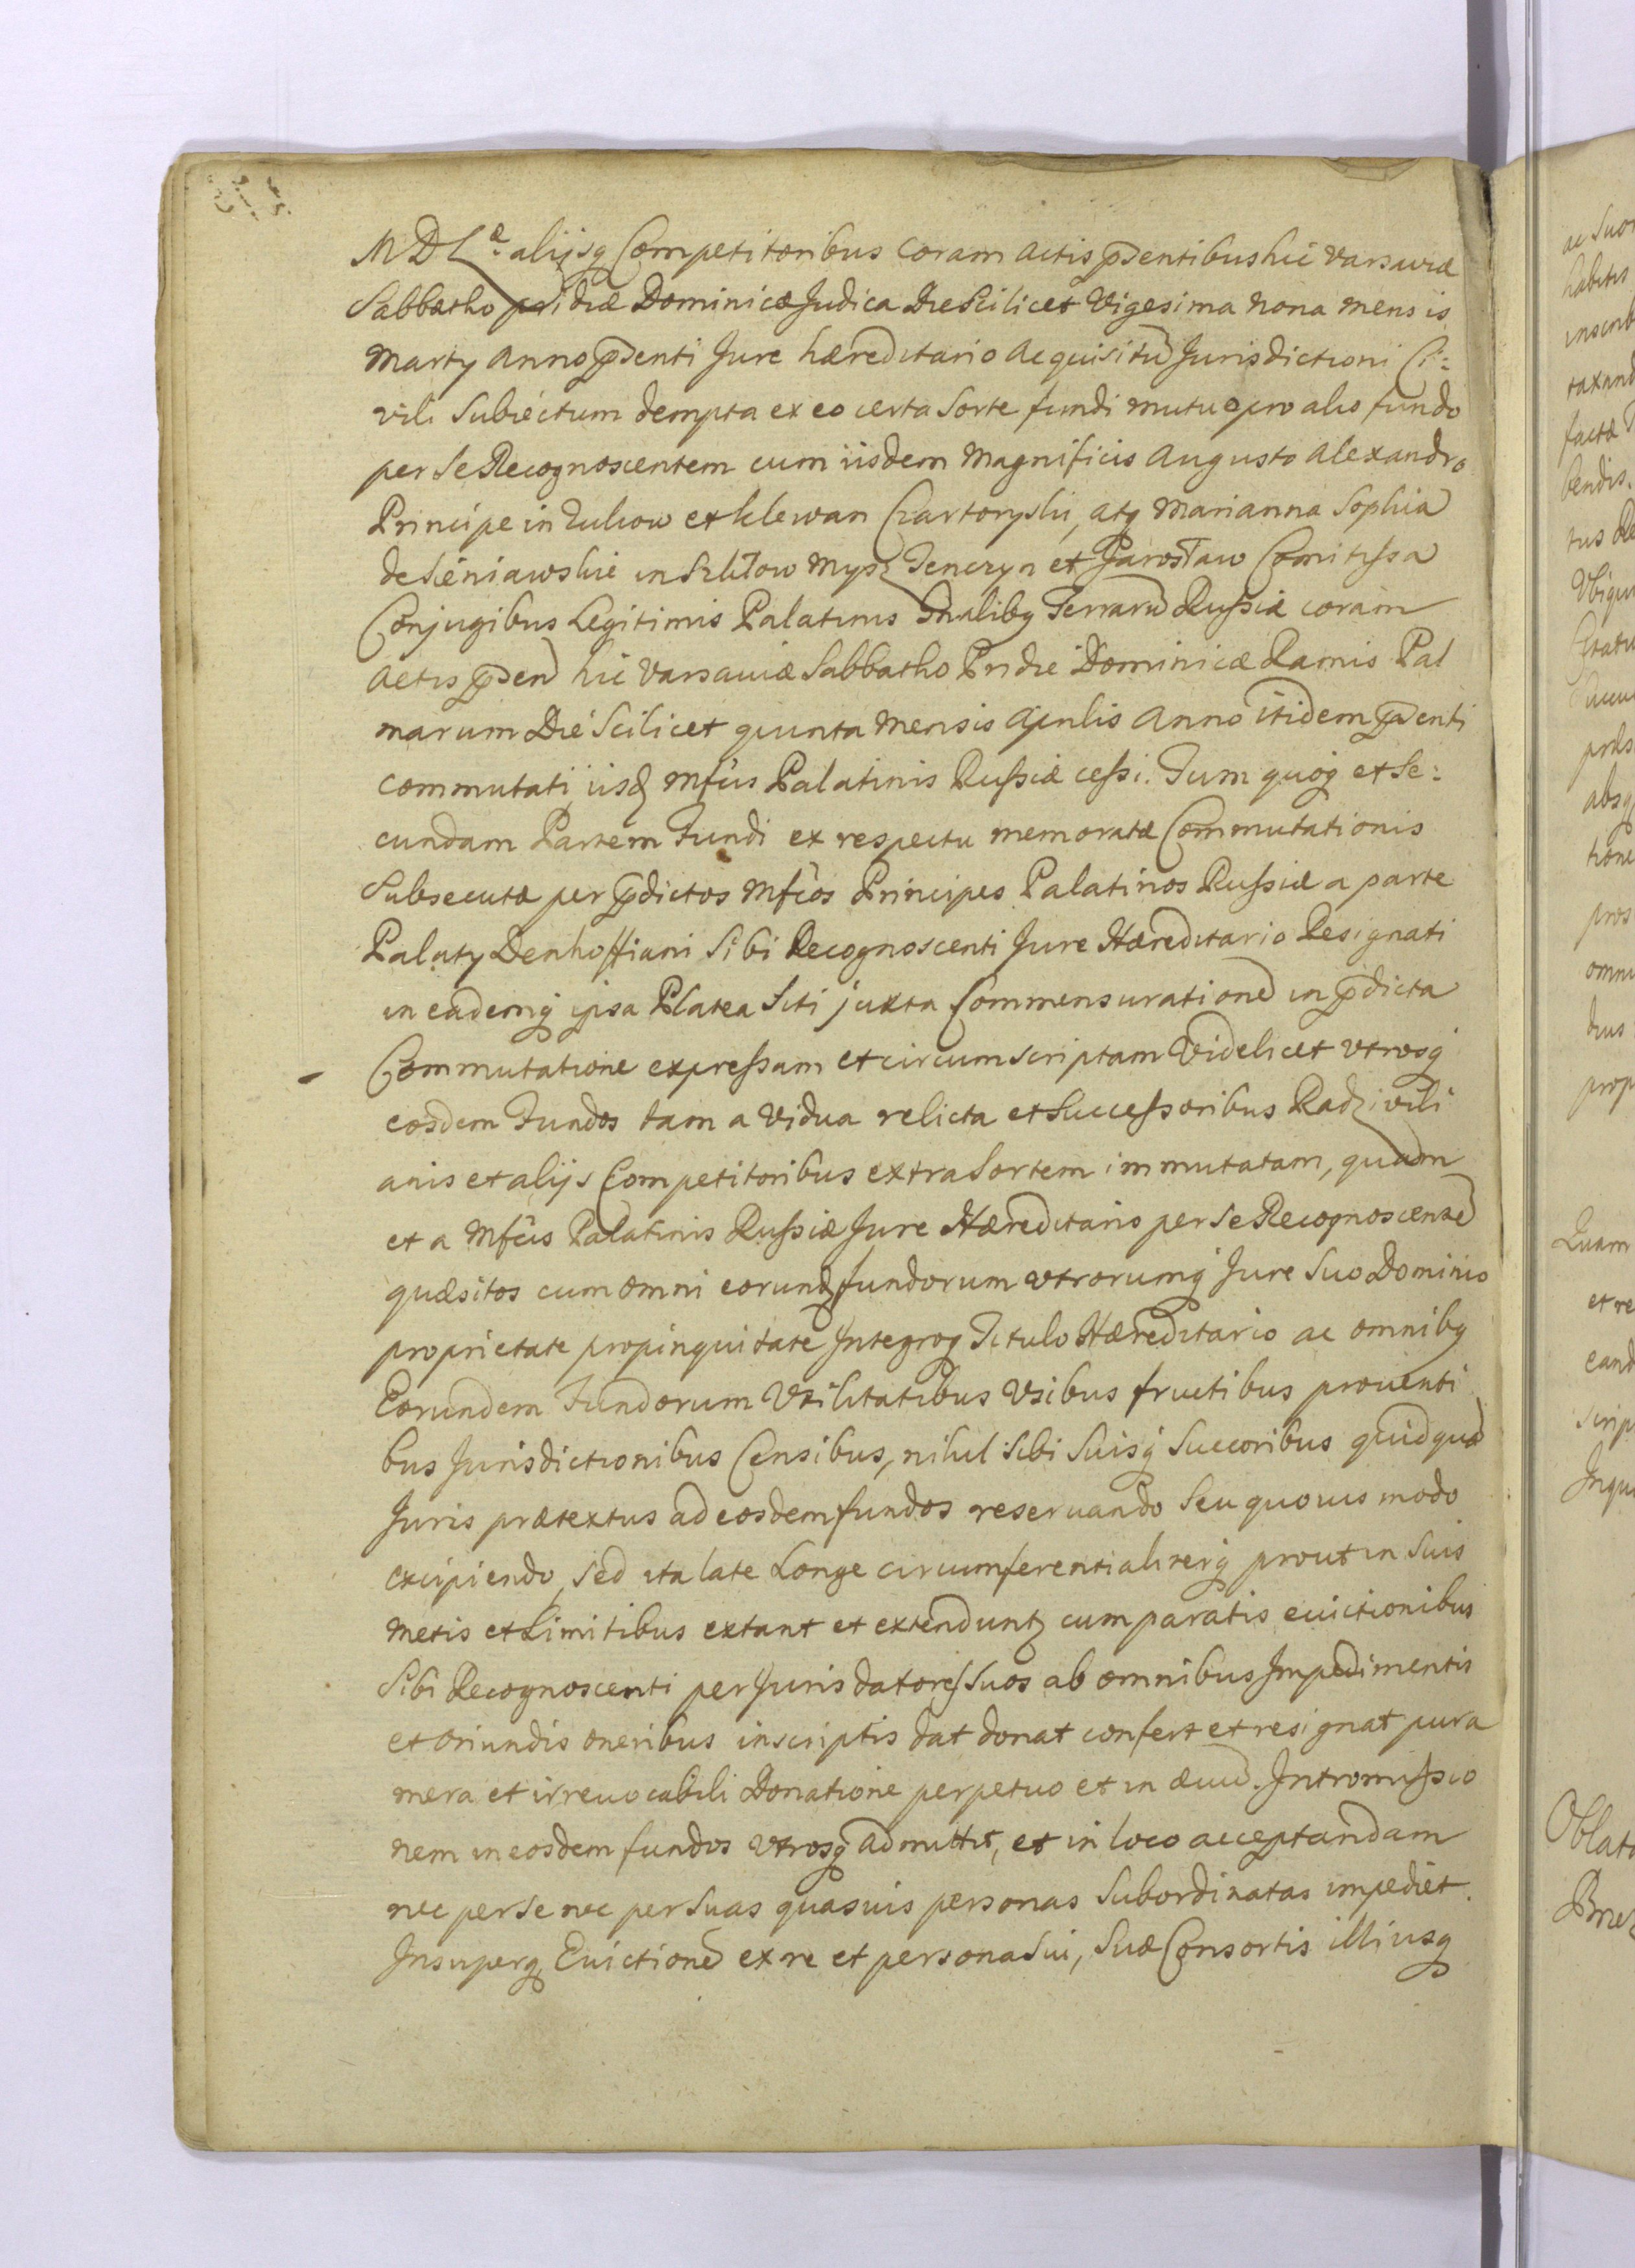 M D Læ alijsq Competitoribus coram actis pdentibus hic Varsaviæ
Sabbatho pridiæ Dominicæ Judica Die Scilicet Vigesima Nona mensis
Marty Anno pdenti Jure hæreditario Acquisitũ Jurisdictioni Ci:
vili Subiectum dempta ex eo certa Sorte fundi mutuo pro alio fundo
per Se Recognoscentem cum iisdem Magnificis Augusto Alexandro
Principe in Zukow et Klewan Czartoryski, atq Marianna Sophia
de Sieniawskie in Szkłow Mysz Tenczyn et Jarosław Comitissa
Conjugibus Legitimis Palatinis Gnalibq Terrarũ Russiæ coram
Actis pden hic Varsaviæ Sabbatho Pridie Dominicæ Ramis Pal
marum Die Scilicet quinta Mensis Aprilis Anno itidem pdenti
commutati, iisd Mfcis Palatinis Russiæ cessi. Tum quoq et Se:
cundam Partem Fundi ex respectu memoratæ Commutationis
Subsecutæ per pdictos Mfcos Principes Palatinos Russiæ a parte
Palaty Denhoffiani Sibi Recognoscenti Jure Hæreditario Resignati
in eademq ipsa Platea Siti juxta Commensurationẽ in pdicta
Commutatione expressam et circumscriptam Videlicet utrosq
eosdem Fundos tam a Vidua relicta et Successoribus Radzivili
anis et alijs Competitoribus extra Sortem immutatam, quam
et a Mfcis Palatinis Russiæ Jure Hæreditario per Se Recognoscentẽ
quæsitos cum omni eorund fundorum utrorumq Jure Suo Dominio
proprietate propinquitate Integroq Titulo Hæreditario ac omnibq
Eorundem Fundorum Utilitatibus Usibus fructibus proventi
bus Jurisdictionibus Censibus, nihil Sibi Suisq Succoribus quidquã
Juris prætextus ad eosdem fundos reservando Seu quovis modo
excipiendo, Sed ita late Longe circumferentialiterq prout in Suis
Metis et Limitibus extant et extendunt cum paratis evictionibus
Sibi Recognoscenti per Juris datores Suos ab omnibus Impedimentis
et oriundis oneribus inscriptis dat donat confert et resignat pura
mera et irrevocabili Donatione perpetuo et in ævũ. Intromissio
nem in eosdem fundos utrosq admittit, et in loco acceptandam
nec per Se nec per Suas quasvis personas Subordinatas impediet.
Insuperq Evictionẽ ex re et persona Sui, Suæ Consortis illiusq